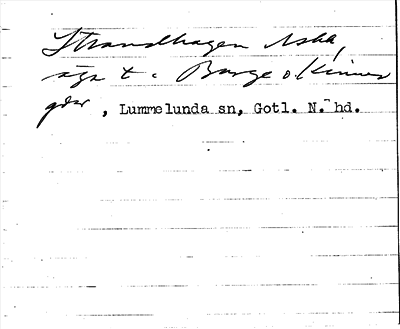 Strandhagen Aska,
äga t. Burge o Kinner
gdr, Lummelunda sn, Gotl. N. hd.